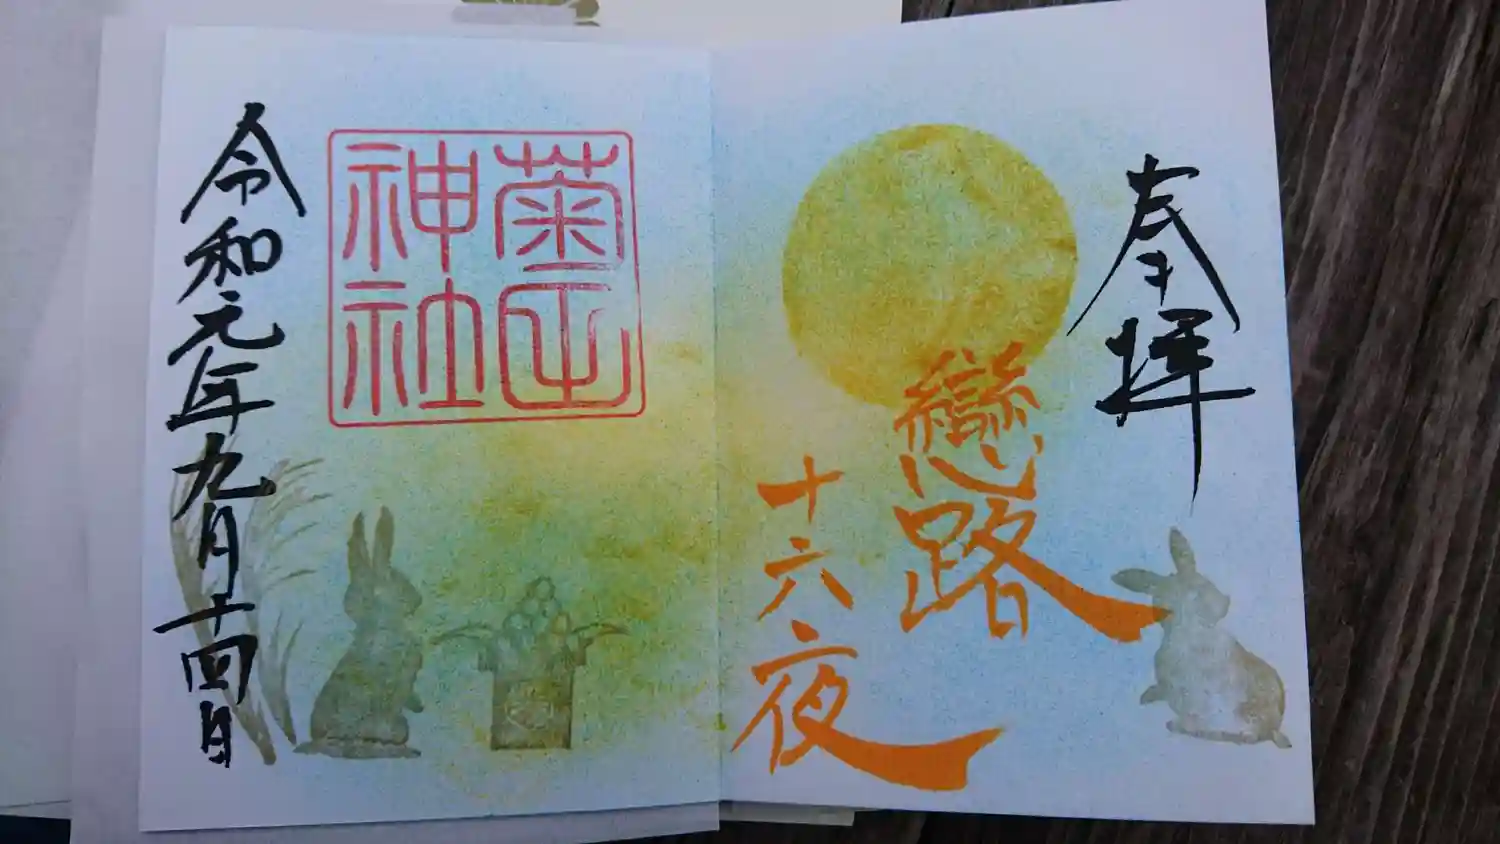 奉拝
戀路
十六夜
菊田
神社
令和元年九月十四日